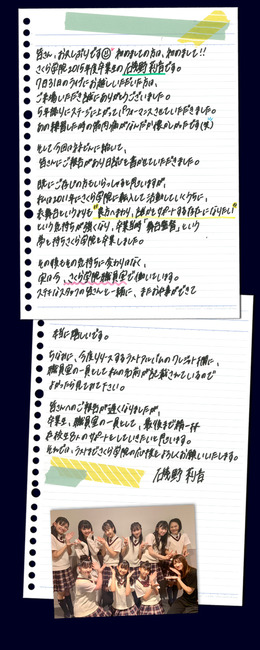 皆さん、お久しぶりです 初めましての方は、初めまして!!
さくら学院2015年度卒業生の磯野莉音です。
7月31日のライブにお越しいただいた方は、
ご来場いただき誠にありがとうございました。
5年振りにステージに上がって、パフォーマンスさせていただきました。
あの練習した時の筋肉痛がなんだか懐かしかったです(笑)
そして今回はまずはじめに
皆さんにご報告があり日誌を書かせていただきました。
既にご存じの方もいらっしゃると思いますが、
私は2011年にさくら学院に転入して活動していくうちに、
表舞台というよりも"裏方にまわり、誰かをサポートする存在になりたい"
という気持ちが強くなり、卒業時"舞台監督"という
夢を持ちさくら学院を卒業しました。
その後もその気持ちに変わりはなく、
実は今、さくら学院職員室で働いています。
ステキなスタッフの皆さんと一緒に、またお仕事ができて
本当に嬉しいです。
ちなみに、今度リリースするラストアルバムのクレジット欄に、
職員室の一員として私の名前が記載されているので
よかったら見てみて下さい。
皆さんへのご報告が遅くなりましたが、
卒業生、職員室の一員として、最後まで精一杯
在校生みんのサポートをしていきたいと思います。
それでは、ラストまでさくら学院の応援をよろしくお願いいたします。
磯野莉音